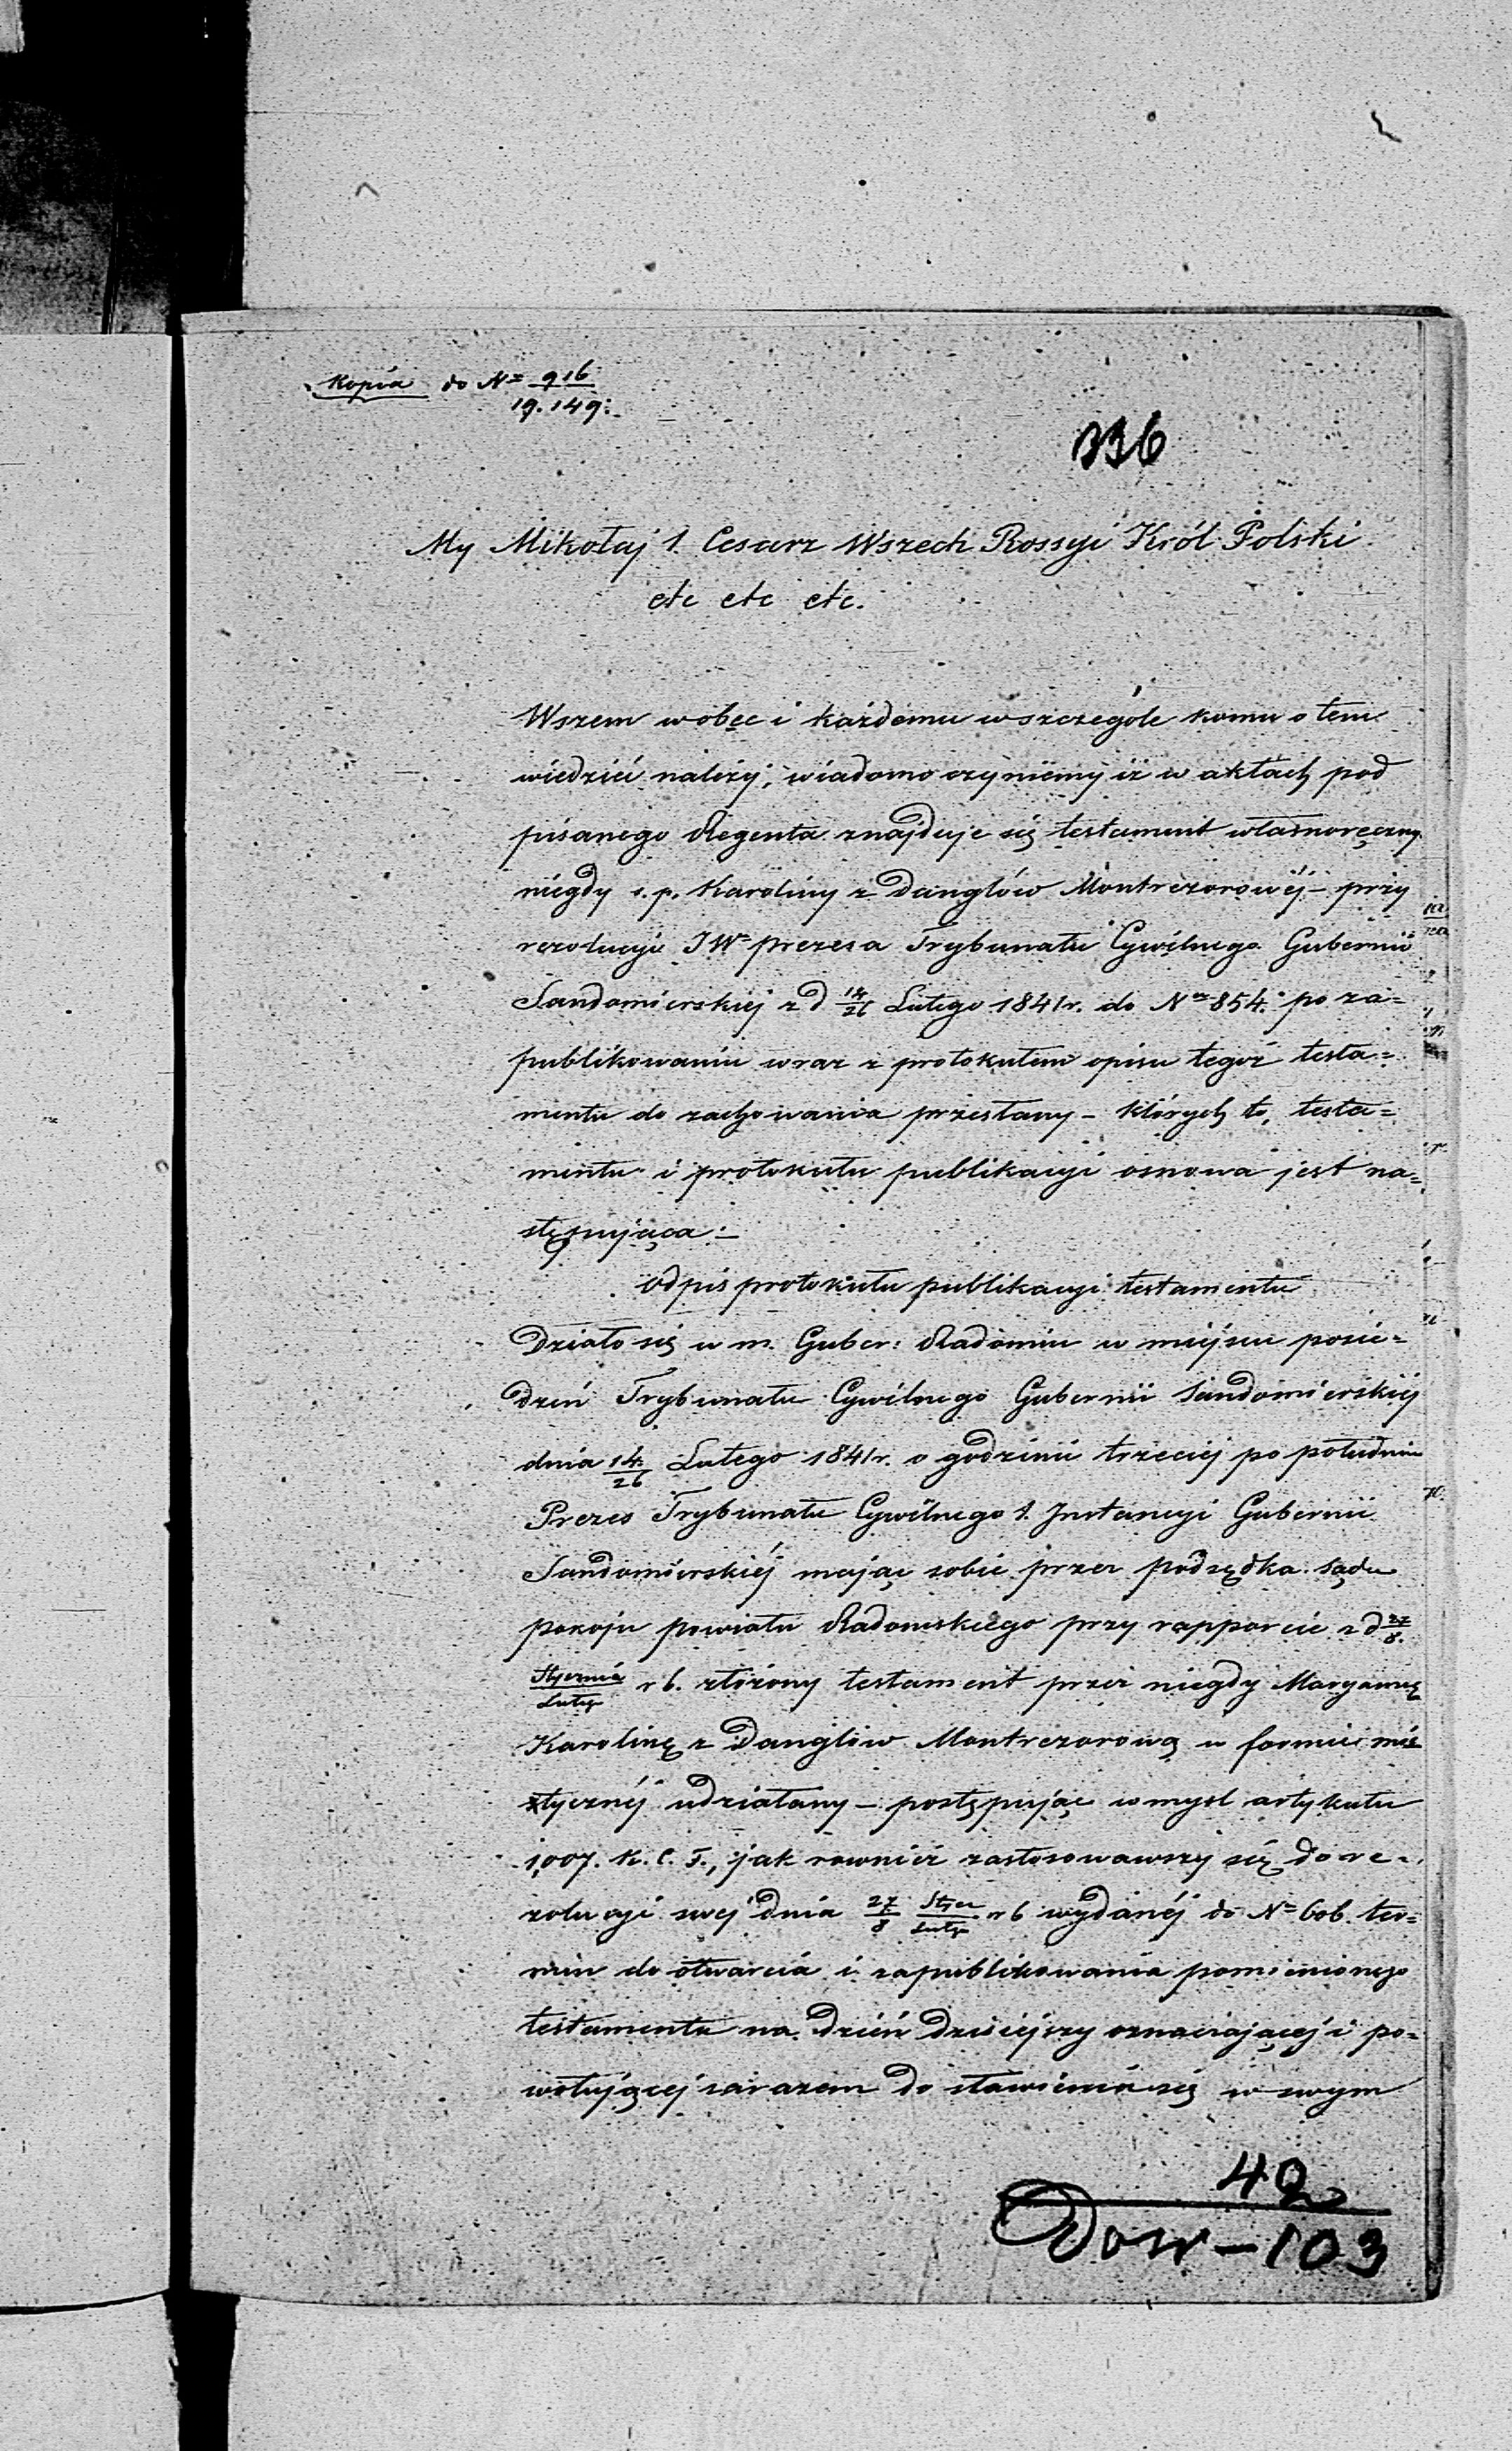 Kopia do Nº 916
19.149.
336
My Mikołaj I. Cesarz Wszech Rossyi Król Polski
etc etc etc.
Wszem wobec i każdemu wszczególe komu o tem
wiedzieć należy, wiadomo czyniemy iż w aktach pod
pisanego Regenta znajduje się testament własnoręczny
niegdy s. p. Karoliny z Danglów Montrezorowéj – przy
rezolucyi JWº prezesa Trybunału Cywilnego Gubernii
Sandomierskiej z d 14/26 Lutego 1841 r. do Nru 854. po za=
publikowaniu wraz z protokułem opisu tegoż testa=
mentu do zachowania przesłany – których to, testa=
mentu i protokułu publikacyi osnowa jest na=
stępująca –
Odpis protokułu publikacyi testamentu
Działo się w m. Guber: Radomiu w miejscu posie=
dzeń Trybunału Cywilnego Gubernii Sandomierskiéj
dnia 14/26 Lutego 1841 r. o godzinie trzeciej po południu
Prezes Trybunału Cywilnego I. Instancyi Gubernii
Sandomierskiéj mając sobie przez podsędka Sądu
pokoju powiatu Radomskiego przy rapporcie z d 27/8.
Stycznia/Lutego r b. złożony testament przez niegdy Maryannę
Karolinę z Danglów Montrezorową w formie mis
tycznéj udziałany – postępując w myśl artykułu
1,007. K. C. F., jak rownież zastosowawszy się do re=
zolucyi swej dnia 27/8 Stycz/Lutg r b wydanéj do Nº 606. ter=
min do otwarcia i zapublikowania pomienionego
testamentu na dzień dzisiejszy oznaczającej i po=
wołującej zarazem do stawienia się w swym
42
Dow – 103